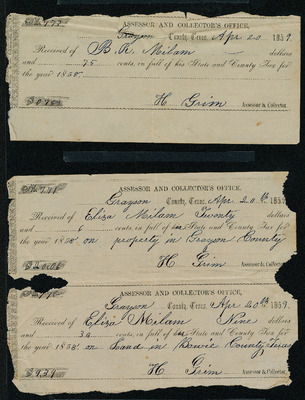 No. 773 ASSESSOR AND COLLECTOR'S OFFICE,
Grayson County, Texas, Apr 20 1859.
Received of B. R. Milam — dollars
and 75 cents, in full of his State and County Tax for
the year 1858.
$0.75 H Grim Assessor & Collector.
No. 771 ASSESSOR AND COLLECTOR'S OFFICE,
Grayson County, Texas, Apr 20th 1859
Received of Eliza Milam Twenty dollars
and 6 cents, in full of her State and County Tax for
the year 1858 on property in Grayson County
$20.06 H Grim Assessor & Collector.
ASSESSOR AND COLLECTOR'S OFFICE,
Grayson County, Texas, Apr 20th 1859.
Received of Eliza Milam Nine dollars
and cents, in full of her State and County Tax for
the year 1858. on Land in Bowie County Texas
H Grim Assessor & Collector.